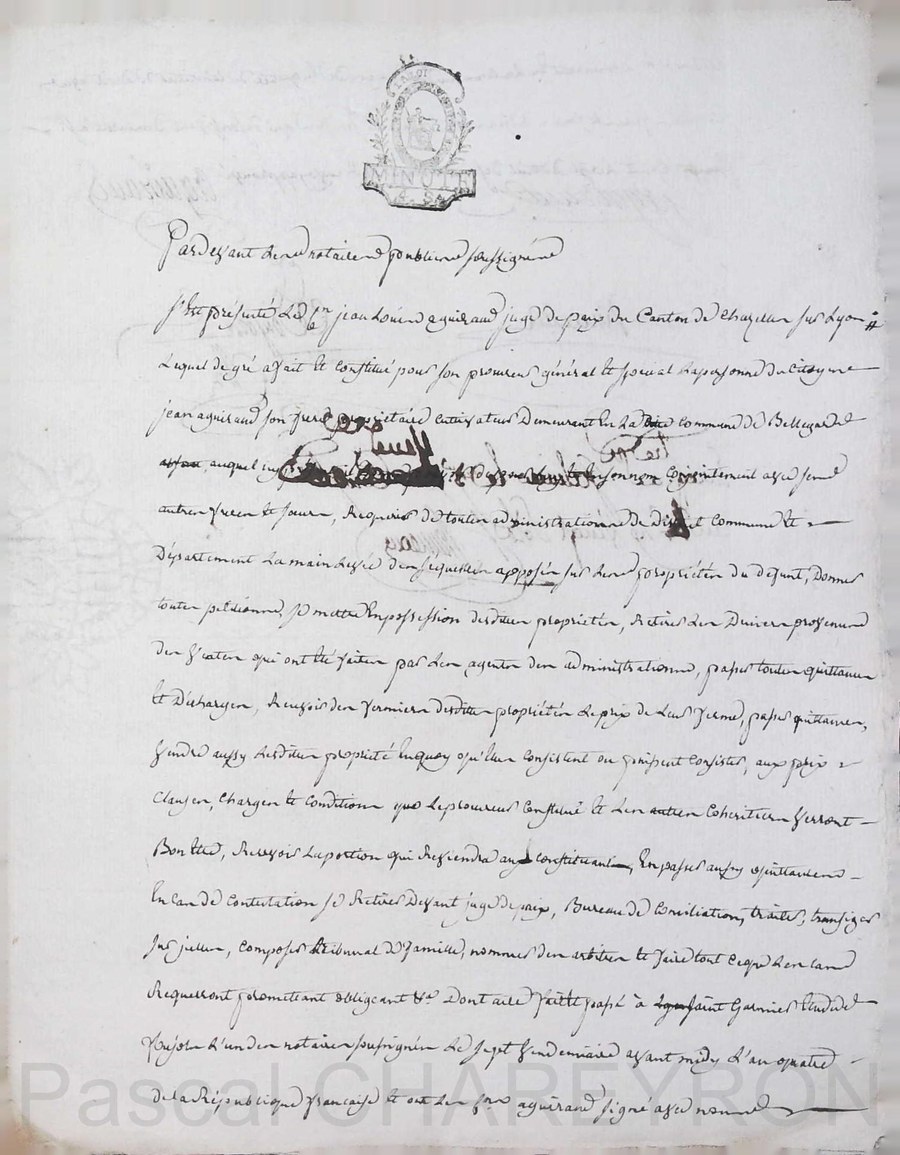 LA LOI
MINUTE
4. S.
Pardevant les notaires publics soussignés
s'Est présenté Led. Sr jean Louis aguiraud juge de paix du Canton de Chazelles sur Lyon #
Lequel de gré a fait et constitué pour son procureur général et special la personne du Citoyen
jean aguiraud son frere propriétaire cultivateur Demeurant En La commune de Bellegarde
auquel conjointement avec ses
autres freres et soeurs, Requerir de toutes administrations de District commune et
Département La main Levée des sequestres apposés sur Les propriétés du défunt, Donner
toutes petitions, se mettre En possession desdites propriétés, Retirer Les Deniers provenus
des Ventes qui ont été faites par Les agents des administrations, passer toutes quittances
Et Décharges, Recevoir des fermiers desdites propriétés Le prix de Leur ferme, passer quittances,
Vendre aussy Lesdites propriétés En quoy qu'Elles Consistent ou puissent Consister, aux prix
Clauses, Charges et Conditions que Le procureur Constitué et Les autres Cohéritiers Verront
Bon Etre, Recevoir La portion qui Reviendra au constituant, En passer aussy quittances
En Cas de Contestation se Retirer Devant juge de paix, Bureau de Conciliation, traiter, transiger
sur icelles, Composer tribunal de famille, nommer des arbitres et faire tout Ce que Les Cas
Requerront promettant obligeant &a. Dont acte fait Et passé à saint Garmier Etude de
Pujol L'un des notaires soussignés Le sept Vendemiaire avant midy L'an quatre
de La République française et ont Les frères aguiraud signé avec nous
Pascal CHAREYRON